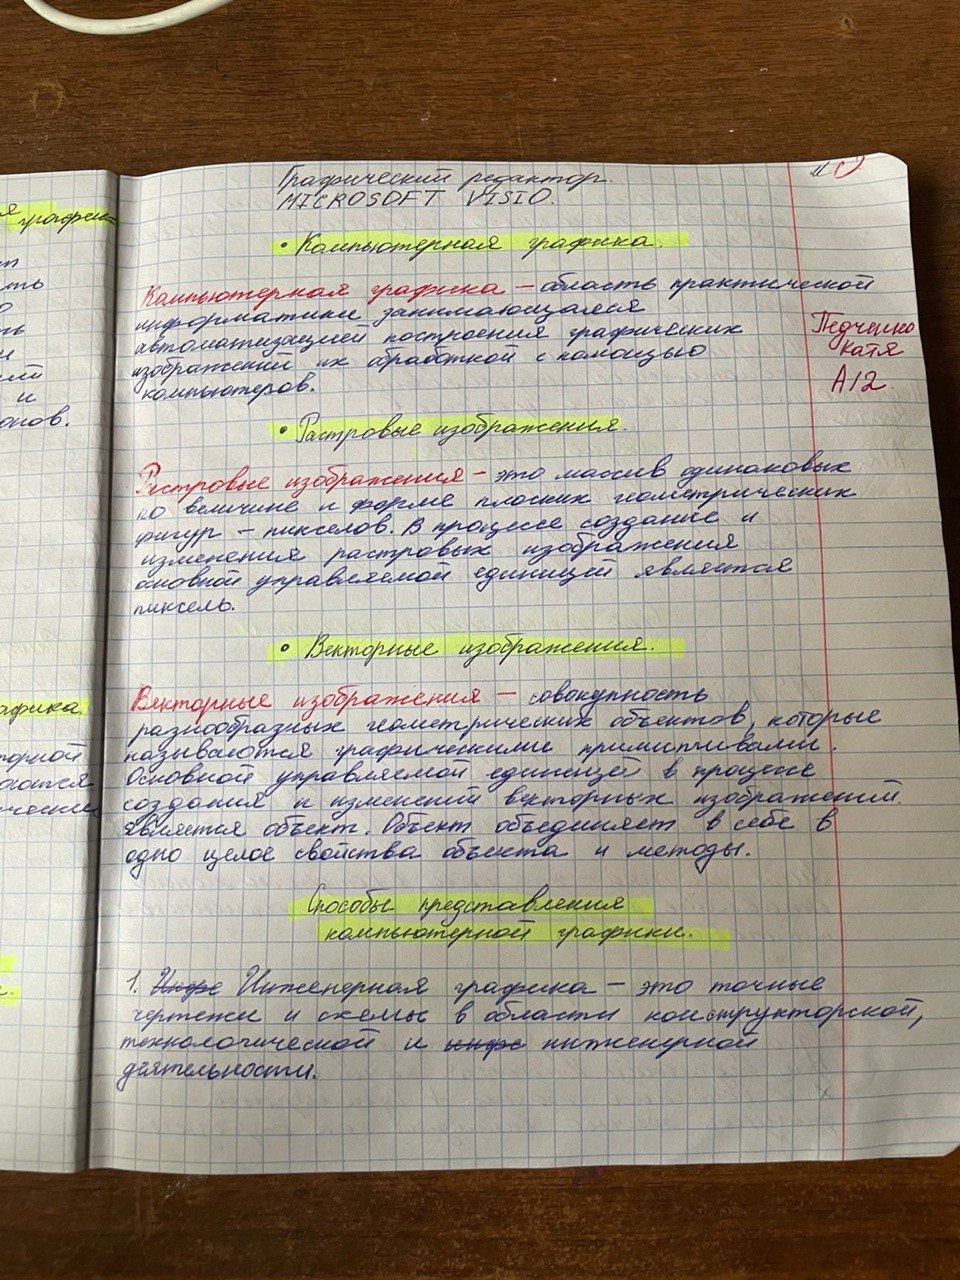 Графический редактор.
MICROSOFT VISIO.
• Компьютерная графика.
Компьютерная графика – область практической
информатики занимающаяся
автоматизацией построения графических
изображений их обработкой с помощью
компьютеров.
Педченко
Катя
А12.
• Растровые изображения.
Растровые изображения – это массив одинаковых
по величине и форме плоских геометрических
фигур – пикселов. В процессе создание и
изменения растровых изображения
основной управляемой единицей является
пиксель.
• Векторные изображения.
Векторные изображения – совокупность
разнообразных геометрических объектов, которые
называются графическими примитивами.
Основной управляемой единицей в процессе
создания и изменений векторных изображений
является объект. Объект объединяет в себе в
одно целое свойства объекта и методы.
Способы представления
компьютерной графики.
1. Инже Инженерная графика – это точные
чертежи и схемы в области конструкторской,
технологической и инженерной
деятельности.
графики
и
афика